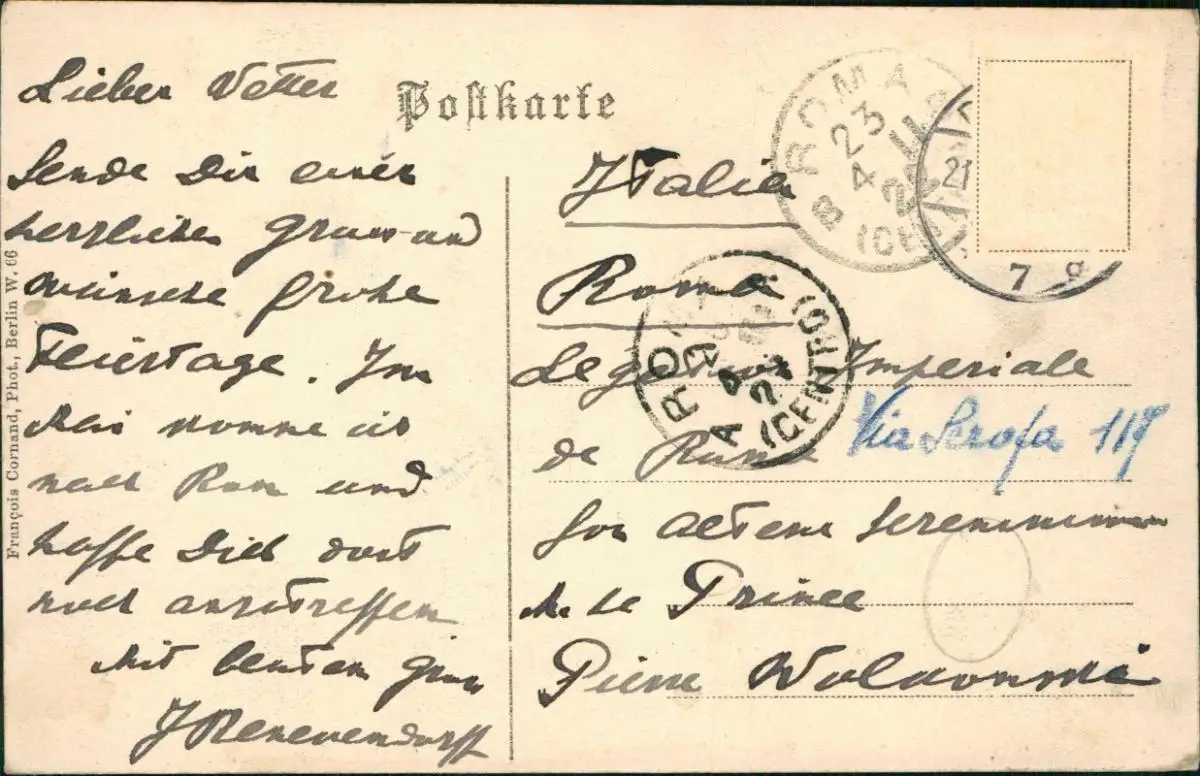 Postkarte
Lieber Vetter
Sende Dir einen
herzlichen Gruss und
wünsche frohe
Feiertage. Im
Mai komme ich
nach Rom und
hoffe Dich dort
noch anzutreffen
Mit besten Gruss
François Cornand, Phot., Berlin W. 66
ROMA
23
4 11
22
8 (CEN
21
7 8
Italia
Roma
ROMA (CENTRO)
Legation Imperiale
de Russie
Via Scrofa 117
Son Altesse Serenissime
Mr le Prince
Pierre Wolkonski